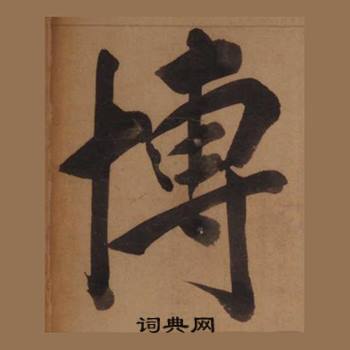 博
词典网